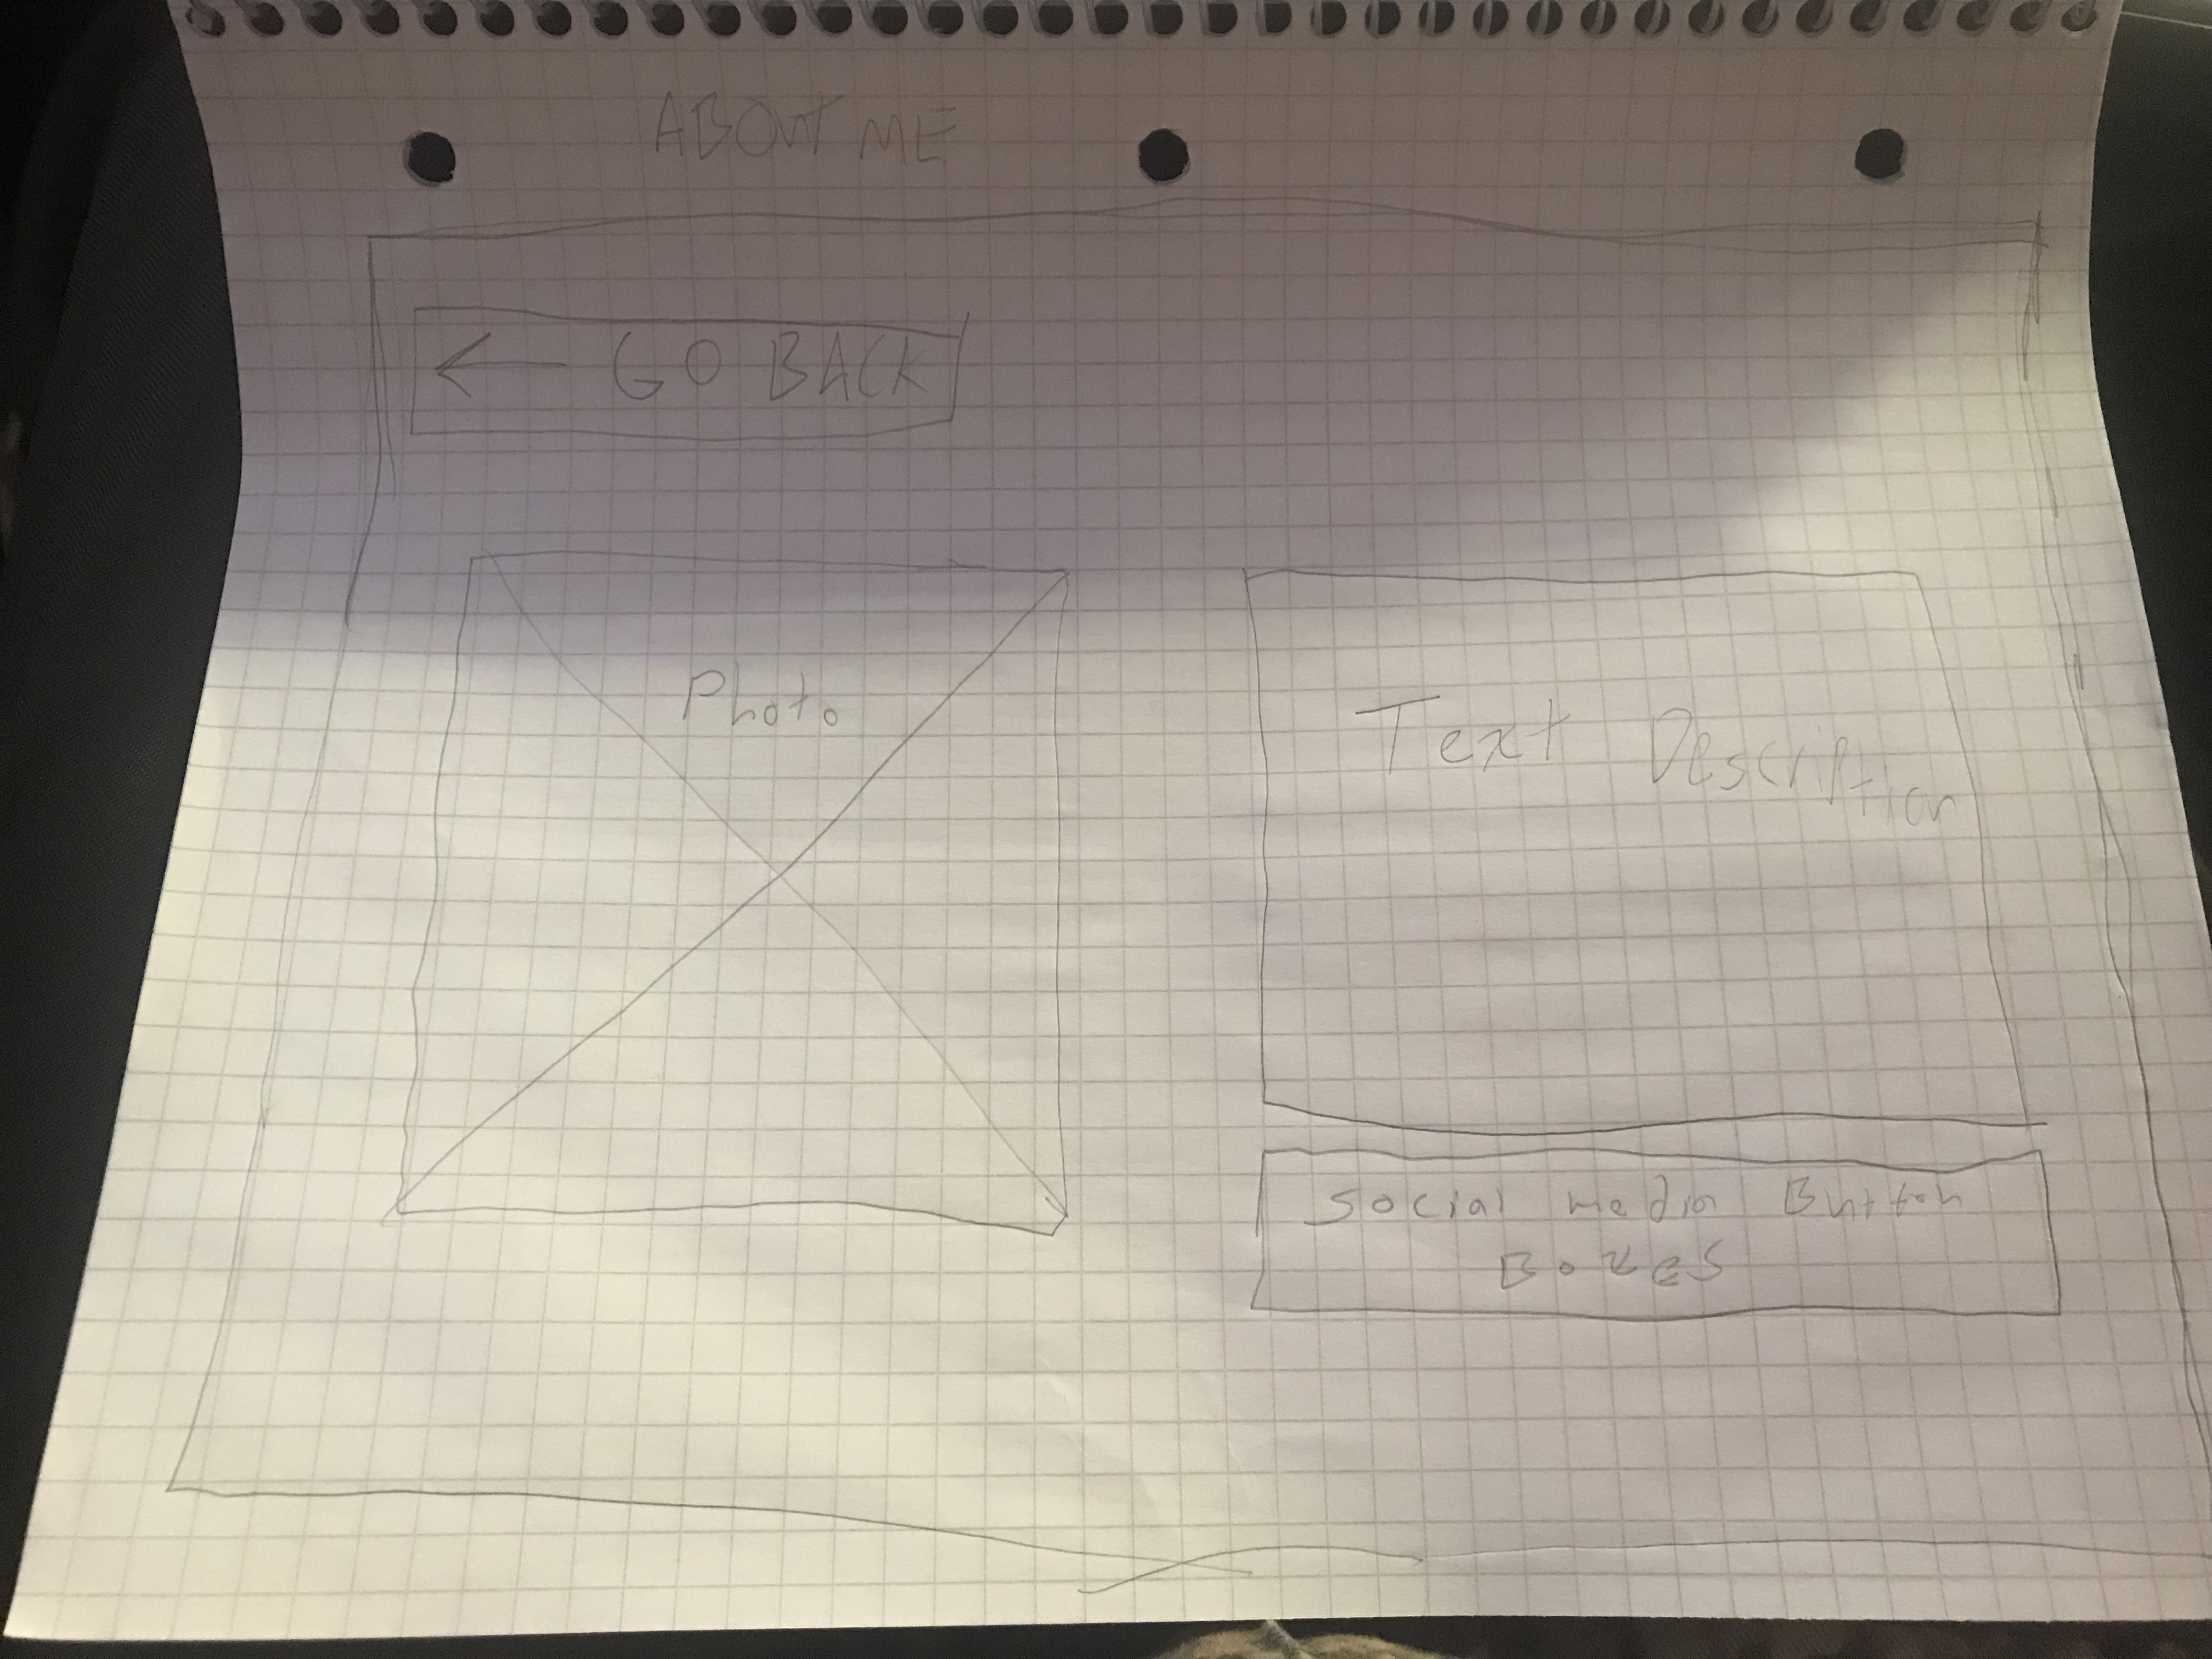 ABOUT ME
← GO BACK
Photo
Text Description
Social media Button
BOXES